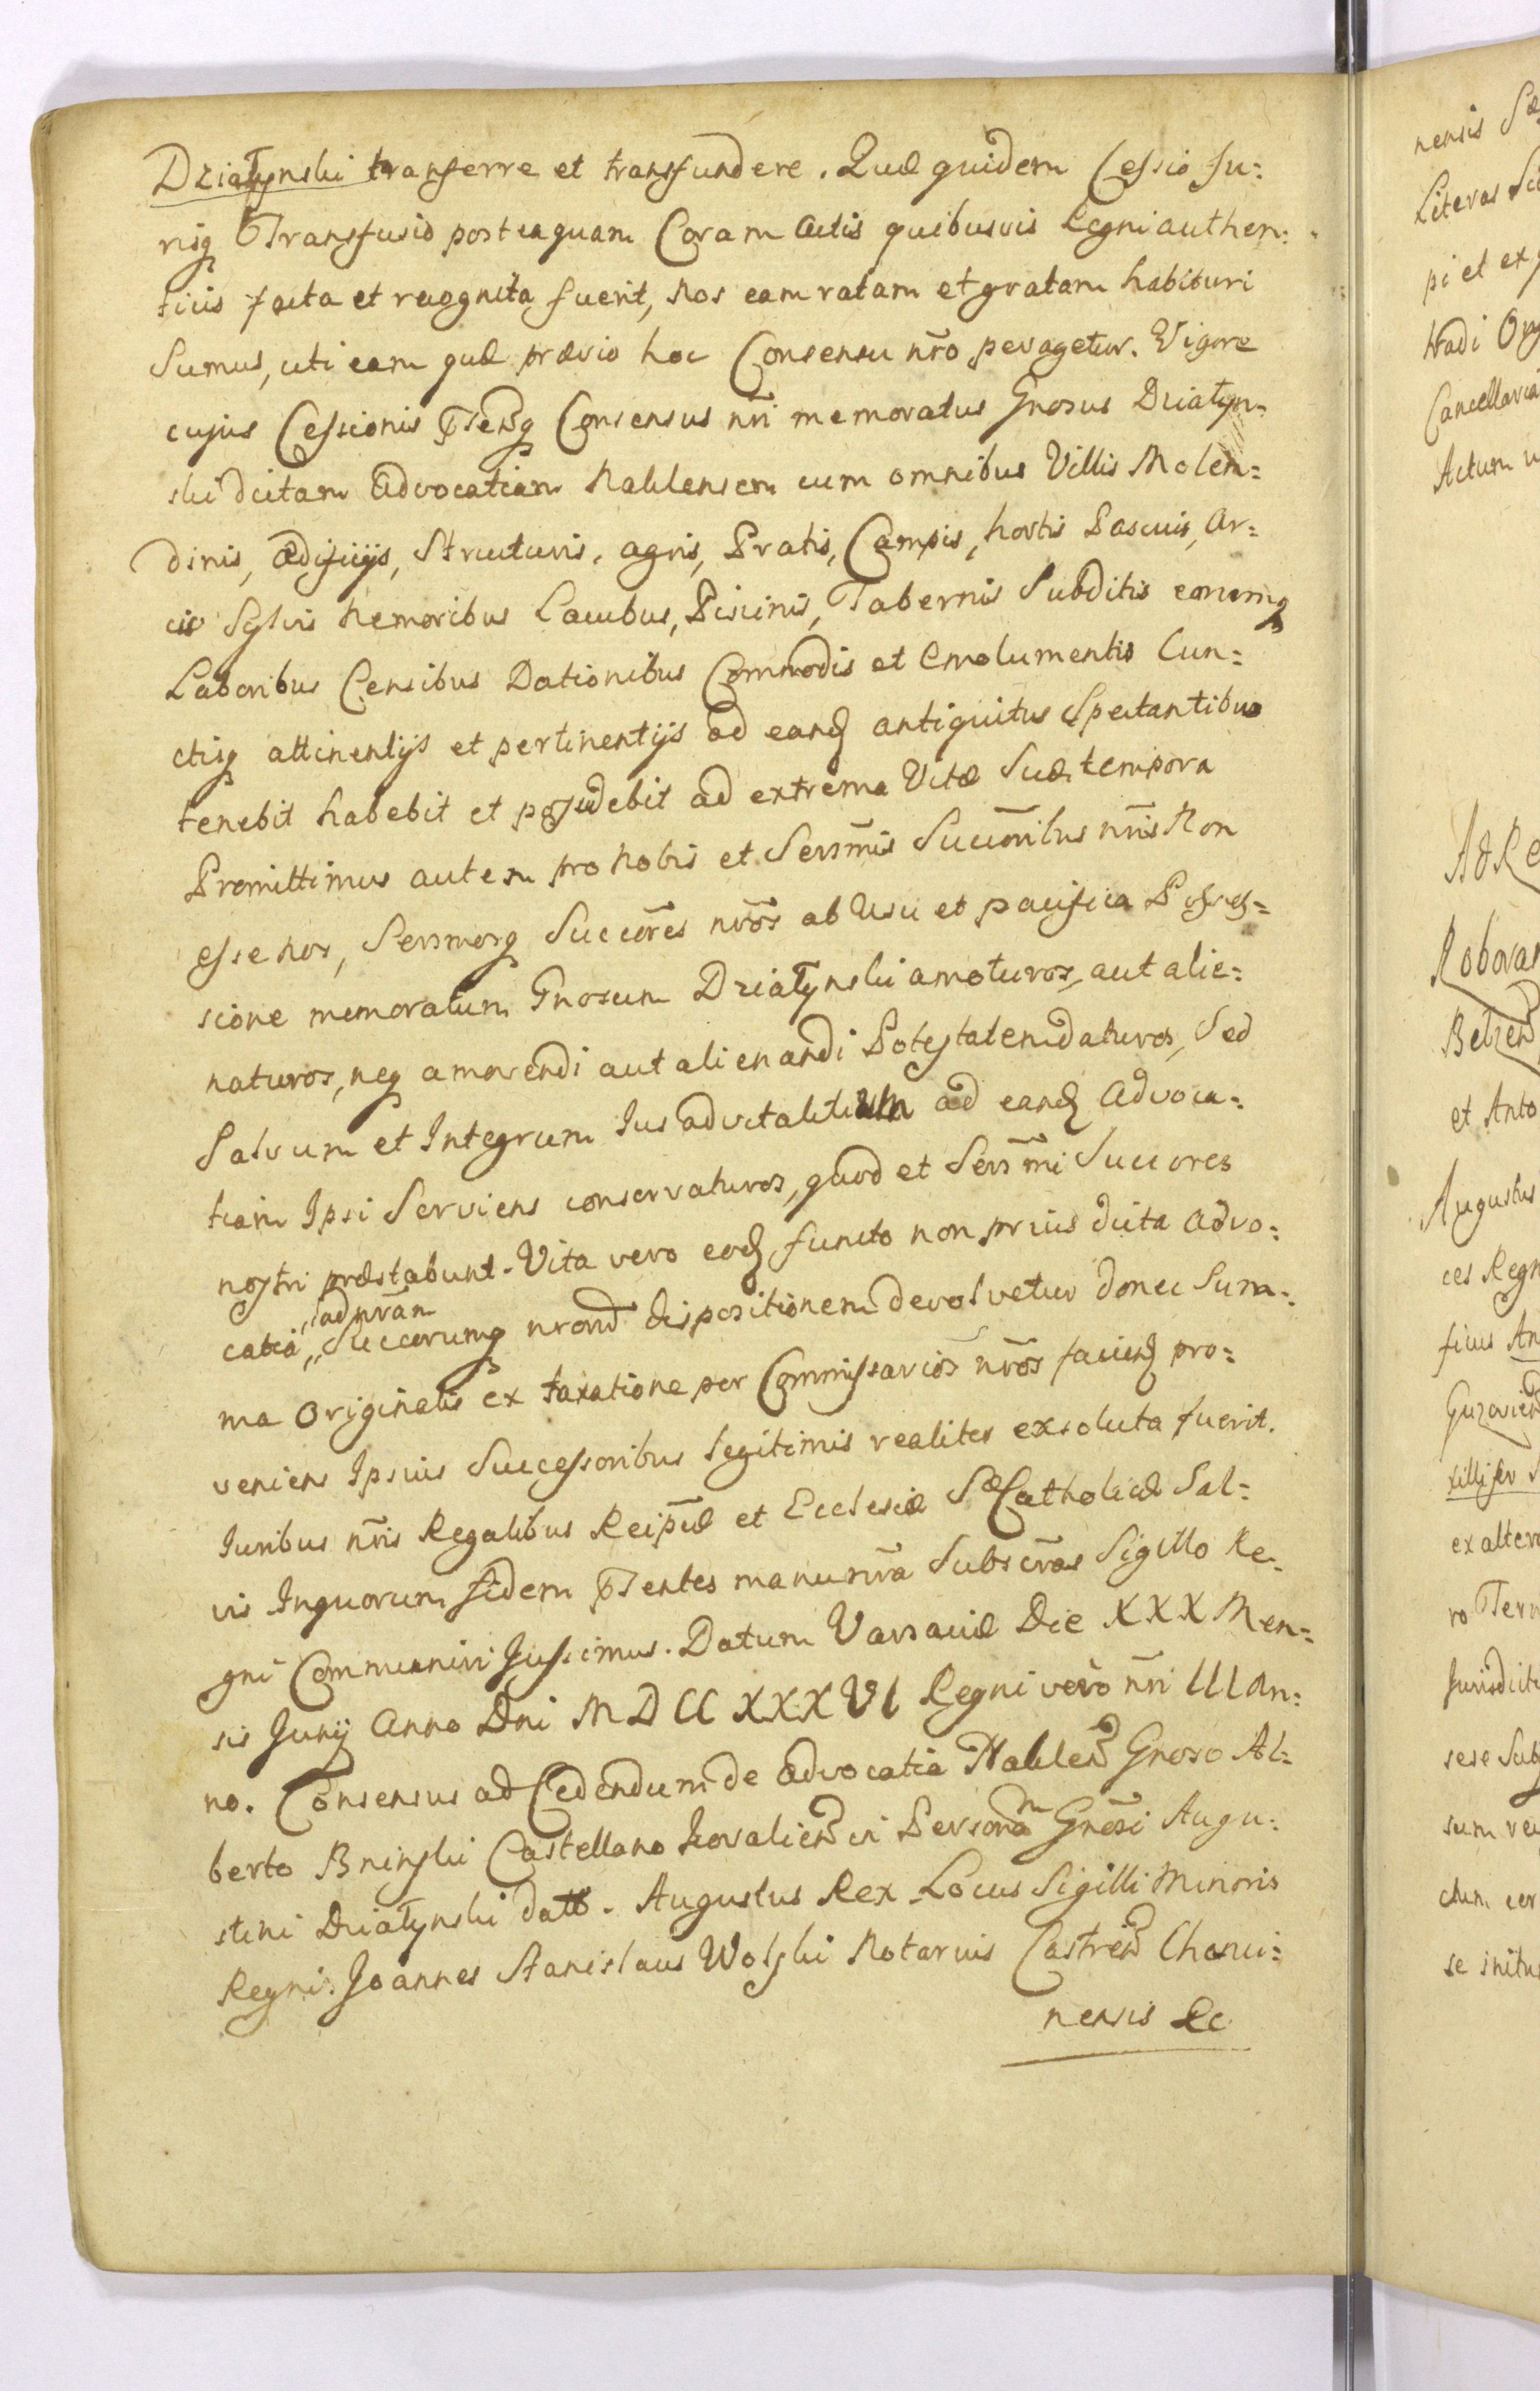 Dziatynski transferre et transfundere. Quæ quidem Cessio Ju=
risq Transfusio posteaquam Coram Actis quibusvis Regni authen=
ticis facta et recognita fuerit, Nos eam ratam et gratam habituri
Sumus, uti eam quæ prævio hoc Consensu nr̃o peragetur. Vigore
cujus Cessionis Consensus nr̃i memoratus Gnosus Dziatyn=
ski dictam Advocatiam Naklensem cum omnibus Villis Molen=
dinis, Ædificijs, Structuris, agris, Pratis, Campis, hortis Pascuis, Ar=
cis Sylvis Nemoribus Lacubus, Piscinis, Tabernis Subditis eorumq
Laboribus Censibus Dationibus Commodis et Emolumentis Cun=
ctisq attinentijs et pertinentijs ad eand antiquitus Spectantibus
tenebit habebit et possidebit ad extrema Vitæ Suæ tempora
Promittimus autem pro Nobis et Sersm̃is Succõribus nr̃is Non
esse nos, Sersmosq Succõres nr̃os ab Usu et pacifica Posses=
sione memoratum Gnosum Dziatynski amoturos, aut alie=
naturos, neq amovendi aut alienandi Potestatem daturos, Sed
Salvum et Integrum Jus advitalitium ad eand Advoca=
tiam Ipsi Serviens conservaturos, quod et Sersm̃i Succores
nostri præstabunt. Vita vero eod functo non prius dicta Advo=
ad nr̃am
catia, Succorumq nrorum dispositionem devolvetur donec Sum=
ma Originalis ex taxatione per Commissarios nr̃os faciend pro=
veniens Ipsius Successoribus legitimis realiter exsoluta fuerit.
Juribus nr̃is Regalibus Reip̃cæ et Ecclesiæ Sæ Catholicæ Sal=
vis Inquorum fidem manu nr̃a Subscr̃as Sigillo Re=
gni Communiri Jussimus. Datum Varsaviæ Die XXX Men=
sis Junij Anno Dni MDCCXXXVI Regni vero nr̃i III An=
no. Consensus ad Cedendum de Advocatia Naklen Gnoso Al=
berto Bninski Castellano Kovalien in Personam Gnosi Augu=
stini Dziatynski datt. Augustus Rex Locus Sigilli Minoris
Regni. Joannes Stanislaus Wolski Notarius Castren Chonci=
nensis &c
nensis
Literas
pi et ex
tradi
Cancellaria
Actum
Ad Re
Roboran
Belzen
et Anto
Augustus
ces Regn
ficus An
Guzovien
xillifer
ex altera
ro
Jurisdicti
sese Sub
sum
ctum
se initu